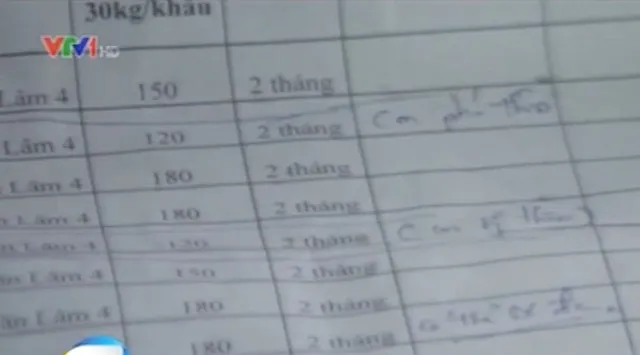 30kg/khẩu
VTV1 HD
Lâm 4 150 2 tháng
Lâm 4 120 2 tháng
Lâm 4 180 2 tháng
Lâm 4 180 2 tháng
Lâm 4 120 2 tháng
Lâm 4 150 2 tháng
Lâm 4 180 2 tháng
180 2 tháng